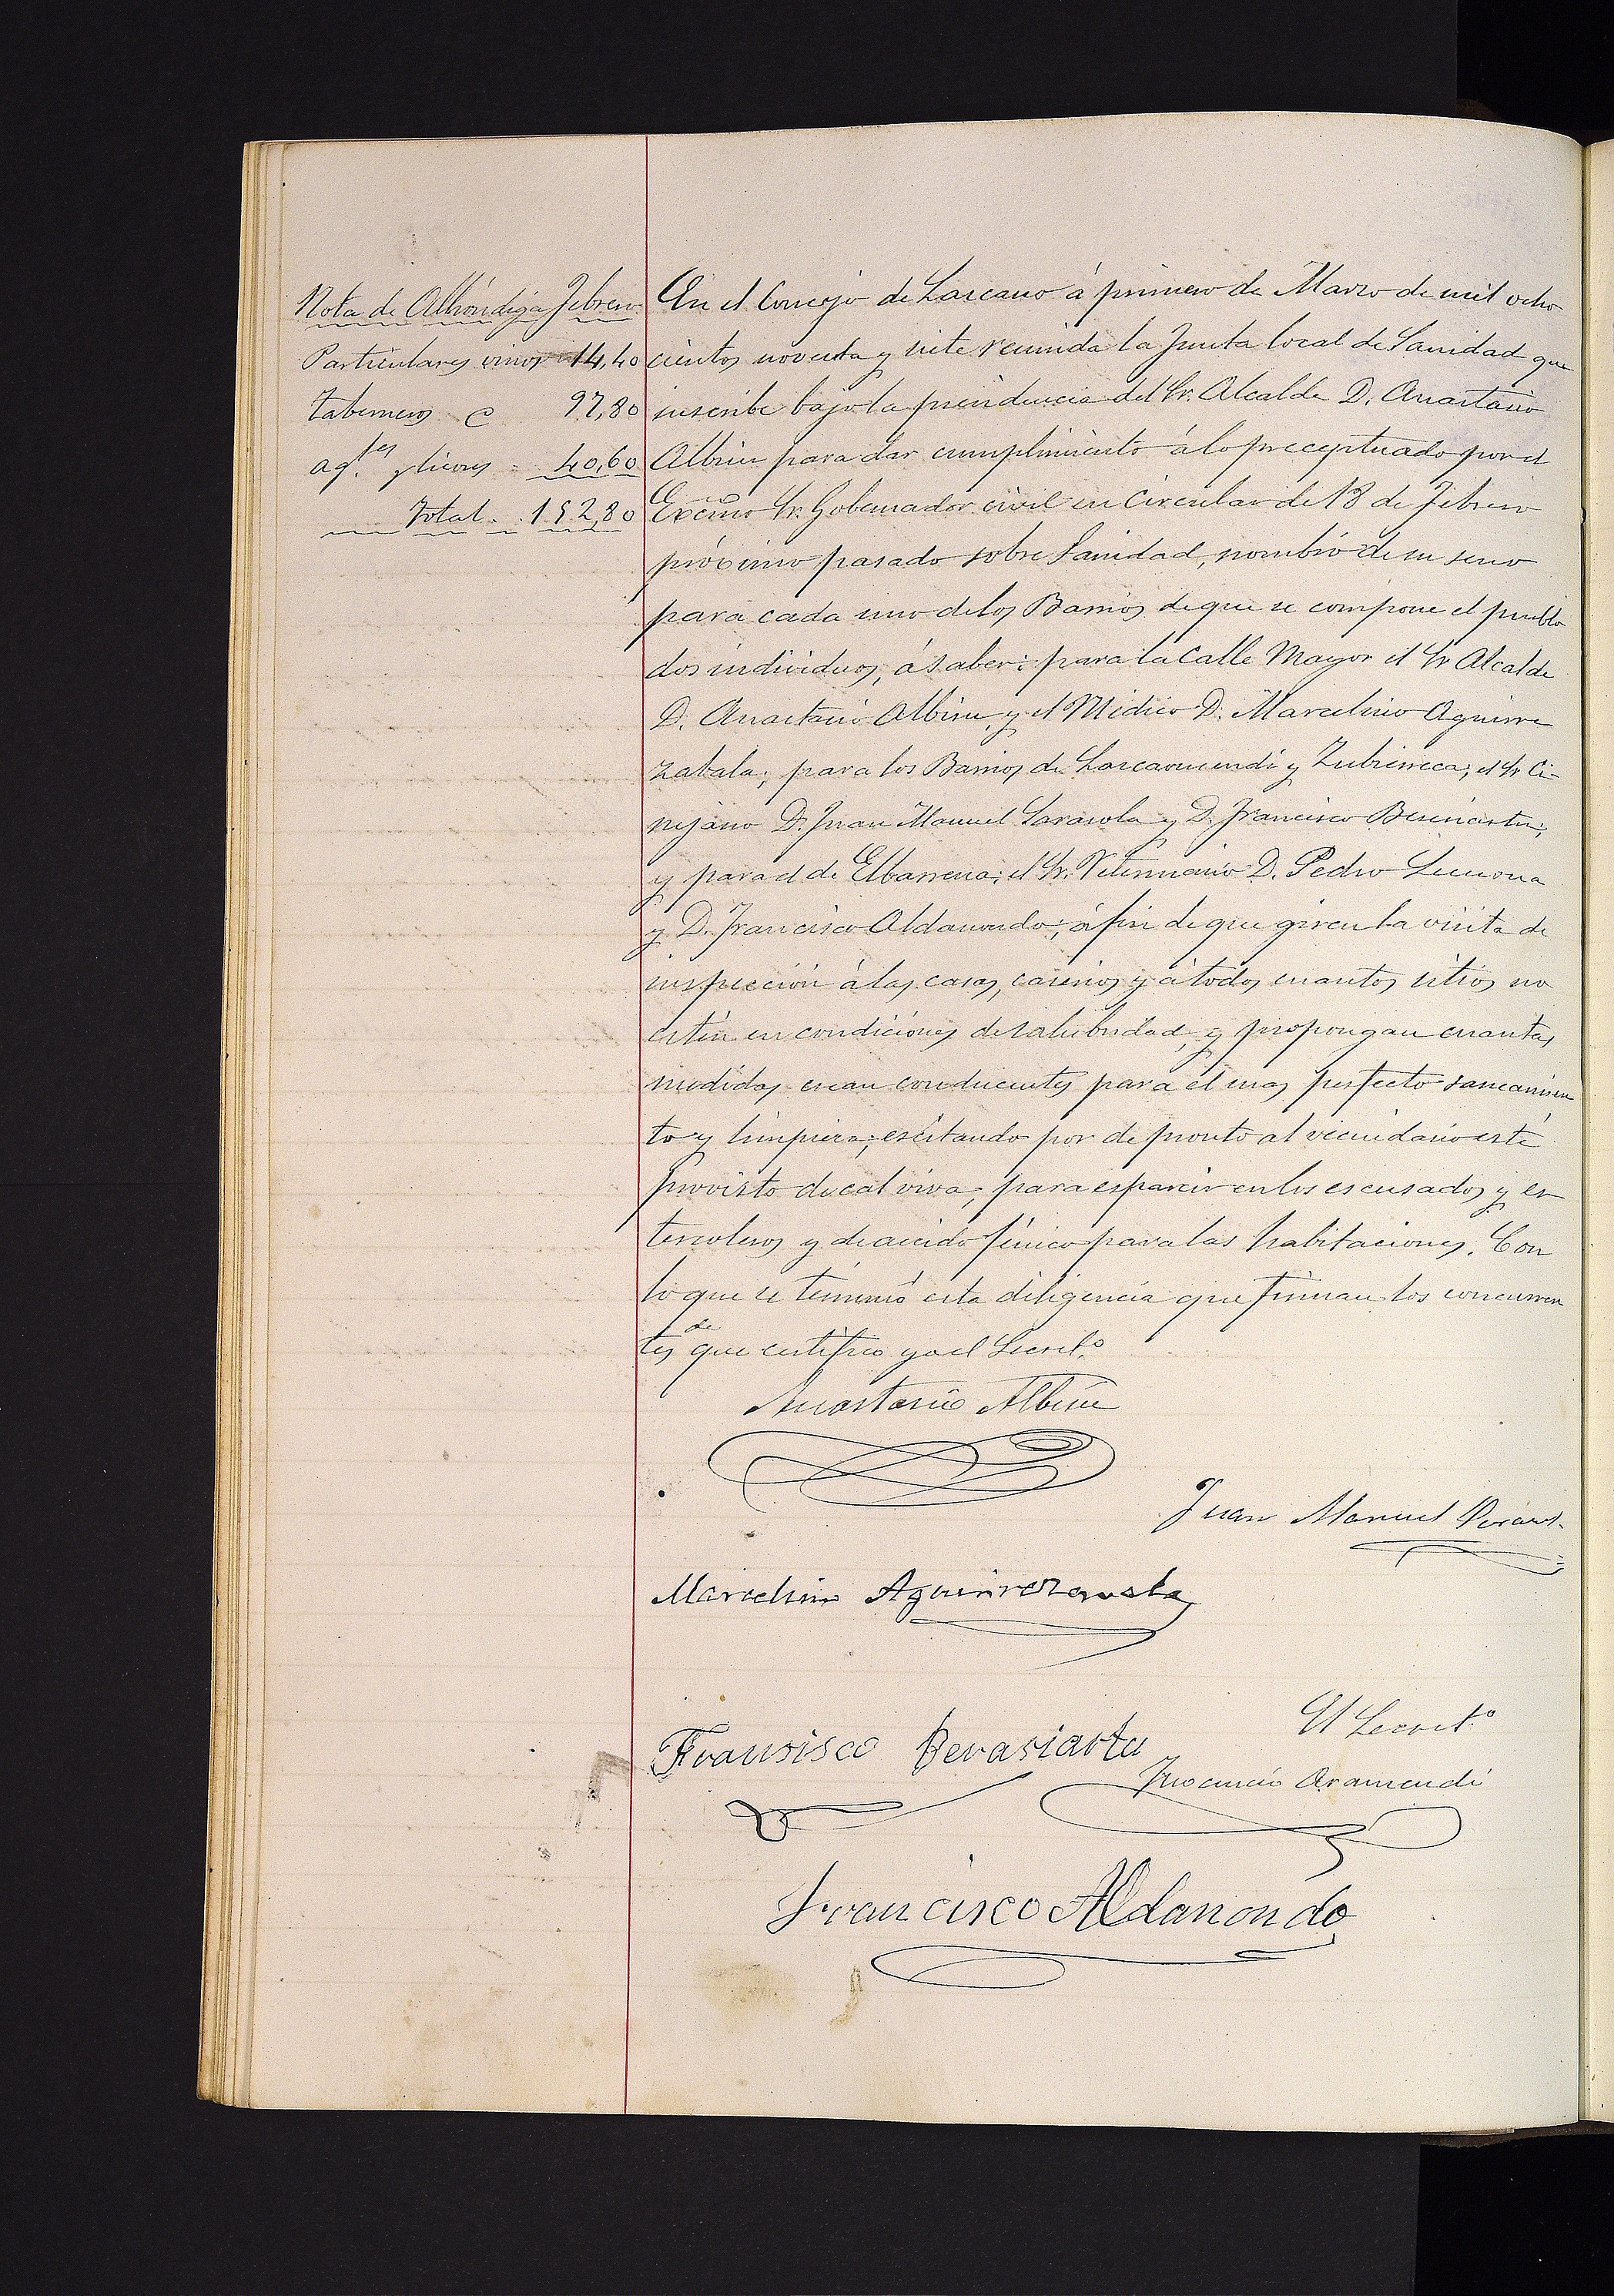 Nota de Alhóndiga Febrero
Particulares vinos 14,40
Taberneros C 97,80
ag.tes y licores = 40,60
Total. 152,80
En el Concejo de Lazcano á primero de Marzo de mil ocho
cientos noventa y siete reunida la Junta local de Sanidad que
suscribe bajo la presidencia del Sr. Alcalde D. Anastasio
Albisu para dar cumplimiento á lo preceptuado por el
Excmo Sr. Gobernador civil en Circular de 18 de Febrero
próximo pasado sobre Sanidad, nombró de su seno
para cada uno de los Barrios de que se compone el pueblo
dos individuos, á saber: para la Calle Mayor el Sr Alcalde
D. Anastasio Albisu, y el Médico D. Marcelino Aguirre
zabala; para los Barrios de Lazcaomendi y Zubierreca; el Sr Ci-
rujano D. Juan Manuel Sarasola y D. Francisco Beraciartu;
y para el de Elbarrena; el Sr. Veterinario D. Pedro Lecuona
y D. Francisco Aldanondo; á fin de que giren la visita de
inspección á las casas, caserios y á todos cuantos sitios no
estén en condiciones de salubridad, y propongan cuantas
medidas crean conducentes para el mas perfecto saneamien
to y limpieza; escitando por de pronto al vecindario esté
provisto de cal viva, para esparcir en los escusados y es
tercoleros y de acido fénico para las habitaciones. Con
lo que se terminó esta diligencia que firman los concurren
tes de que certifico yo el Secret.o
Anastasio Albisu
Juan Manuel
Marcelino Aguirrezavala
Fransisco Berasiartu
El Secret.o
Inocencio Aramendi
Francisco Aldanondo